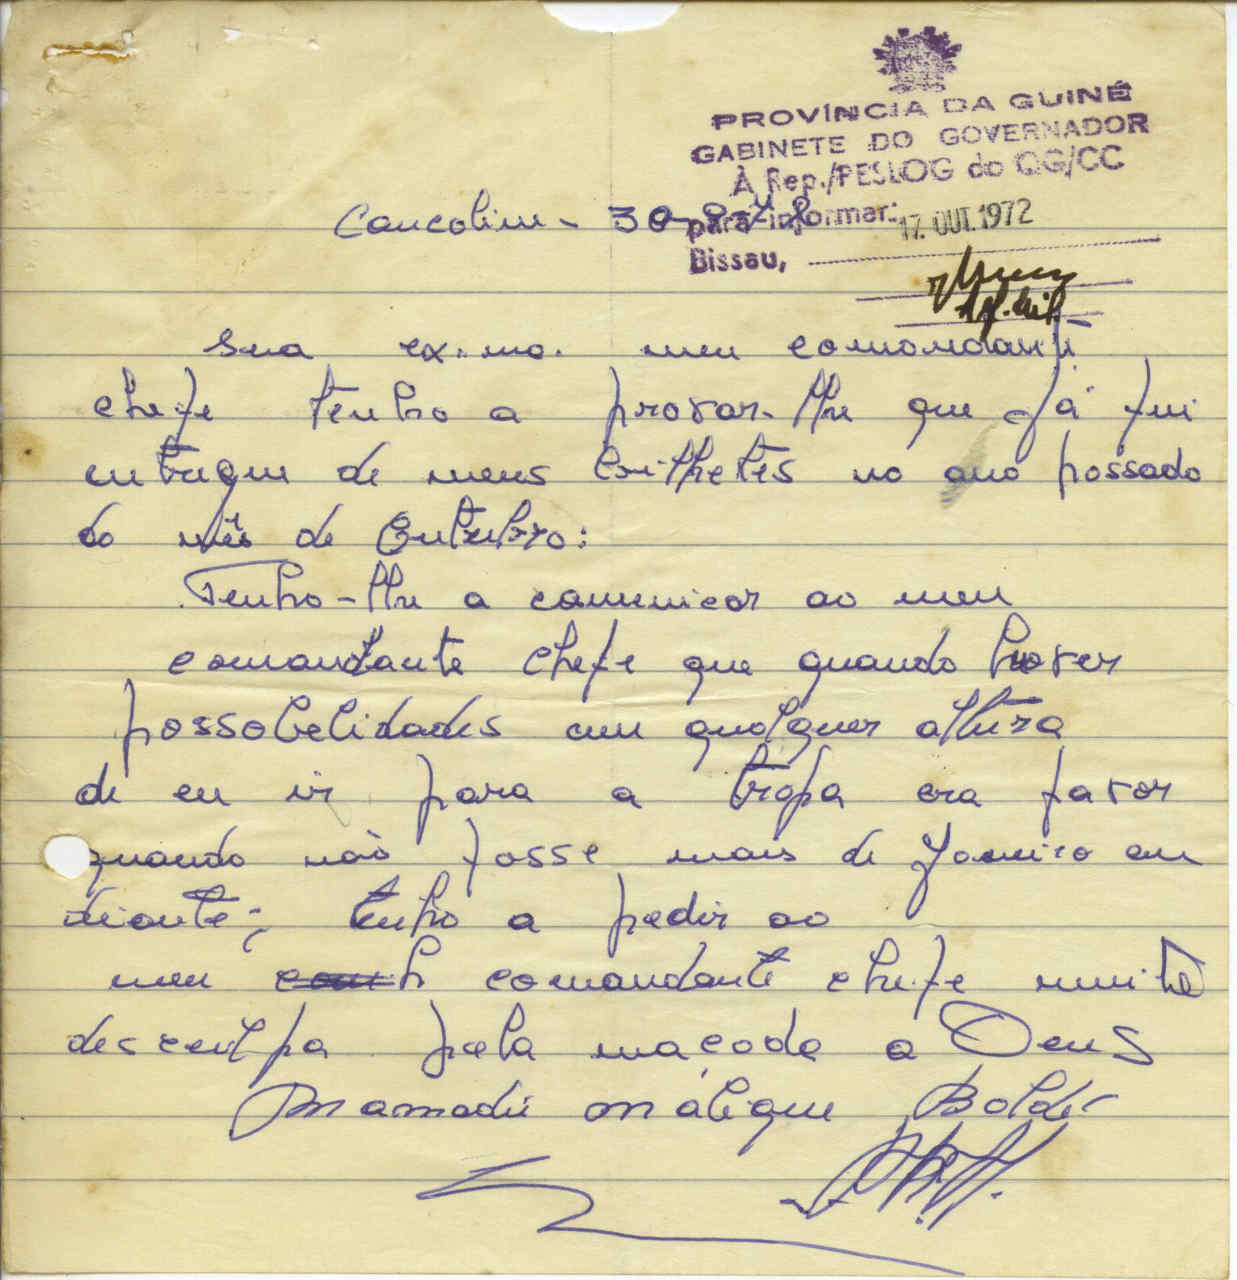 PROVÍNCIA DA GUINÉ
GABINETE DO GOVERNADOR
À Rep./PESLOG do QG/CC
para informar:
17. OUT. 1972
Bissau,
Cancolim - 30-
Sua ex.mo. meu comandante
chefe tenho a provar-lhe que já fui
entregue de meus bilhetes no ano passado
do mês de Outubro:
Tenho-lhe a comunicar ao meu
comandante chefe que quando hover
possobelidades em qualquer altura
de eu ir para a tropa era favor
quando não fosse mais de Janeiro em
diante; tenho a pedir ao
meu comandante chefe muita
desculpa pela maçada a Deus
Mamadú Málique Baldé